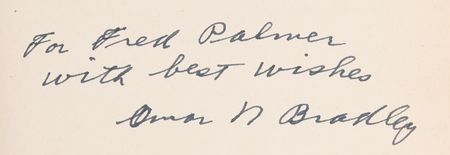 For Fred Palmer
with best wishes
Omar N Bradley